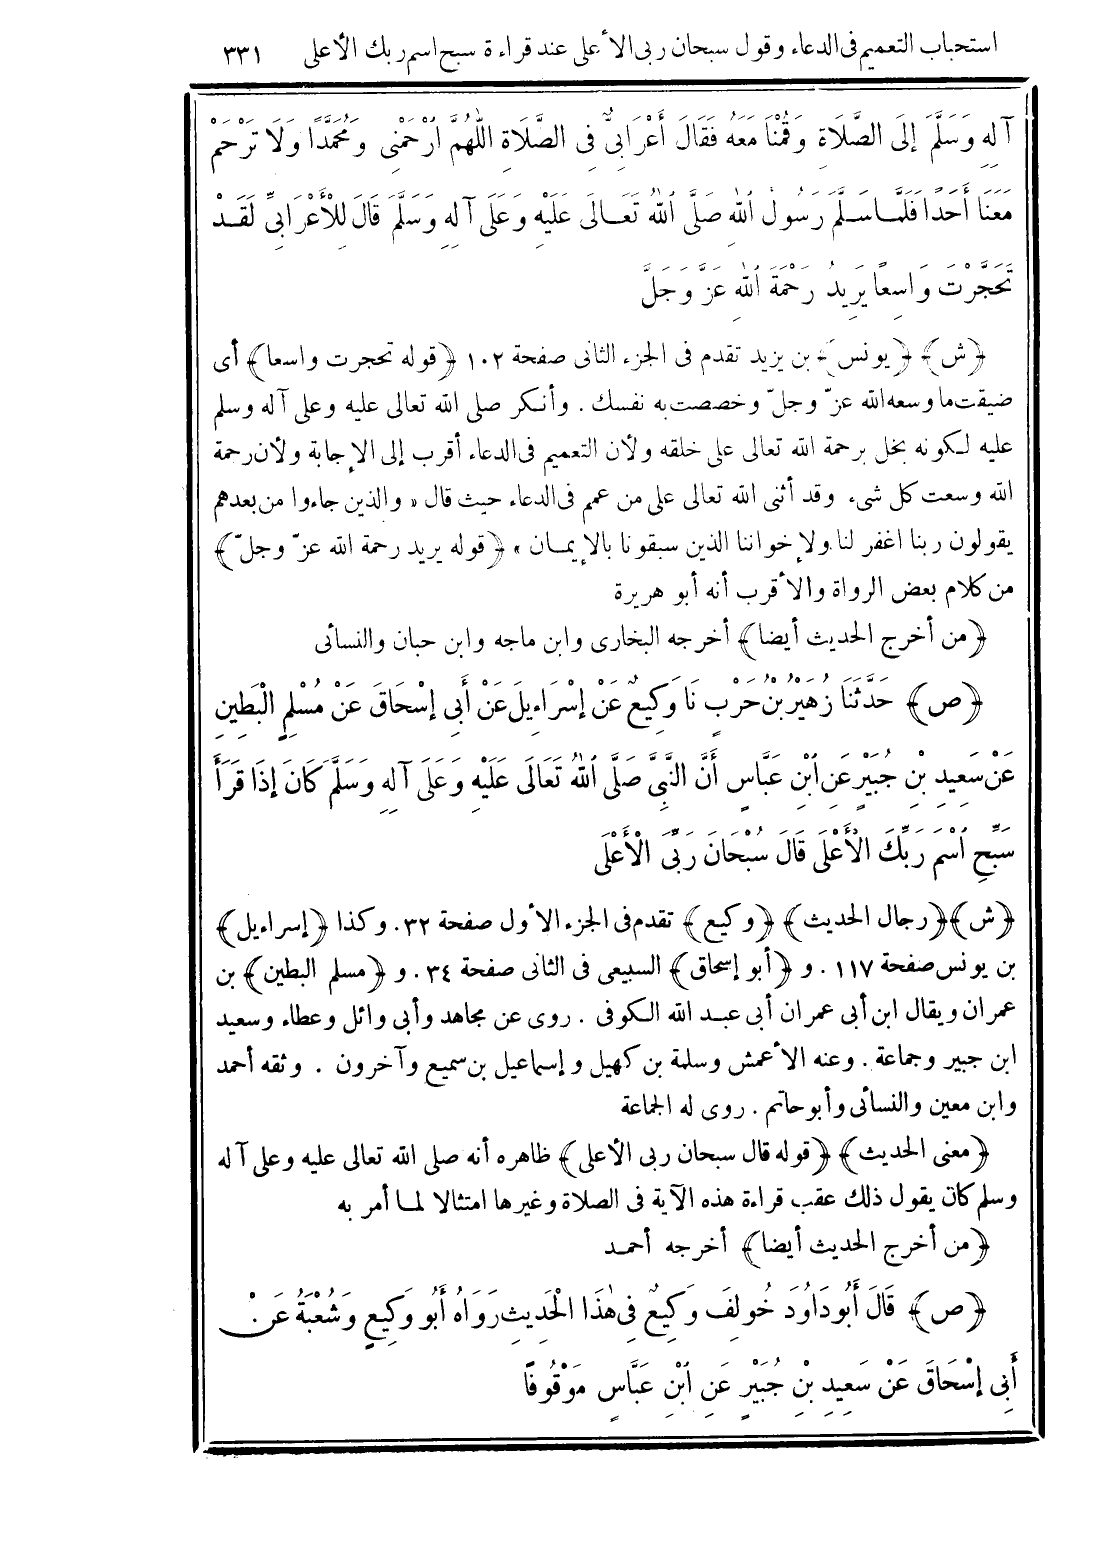 استحباب التعميم فى الدعاء وقول سبحان ربى الأعلى عند قراءة سبح اسم ربك الأعلى ٣٣١
آلِهِ وَسَلَّمَ إِلَى الصَّلَاةِ وَقُمْنَا مَعَهُ فَقَالَ أَعْرَابِىٌّ فِى الصَّلَاةِ اللّٰهُمَّ ٱرْحَمْنِى وَمُحَمَّدًا وَلَا تَرْحَمْ
مَعَنَا أَحَدًا فَلَمَّا سَلَّمَ رَسُولُ ٱللهِ صَلَّى ٱللهُ تَعَالَى عَلَيْهِ وَعَلَى آلِهِ وَسَلَّمَ قَالَ لِلْأَعْرَابِىِّ لَقَدْ
تَحَجَّرْتَ وَاسِعًا يُرِيدُ رَحْمَةَ ٱللهِ عَزَّ وَجَلَّ
﴿ش﴾ ﴿يونس﴾ بن يزيد تقدم فى الجزء الثانى صفحة ١٠٢ ﴿قوله تحجرت واسعا﴾ أى
ضيقت ما وسعه الله عزّ وجلّ وخصصت به نفسك . وأنكر صلى الله تعالى عليه وعلى آله وسلم
عليه لكونه بخل برحمة الله تعالى على خلقه ولأن التعميم فى الدعاء أقرب إلى الإجابة ولأن رحمة
الله وسعت كل شىء وقد أثنى الله تعالى على من عمم فى الدعاء حيث قال « والذين جاءوا من بعدهم
يقولون ربنا اغفر لنا ولإخواننا الذين سبقونا بالإيمان » ﴿قوله يريد رحمة الله عزّ وجلّ﴾
من كلام بعض الرواة والأقرب أنه أبو هريرة
﴿من أخرج الحديث أيضا﴾ أخرجه البخارى وابن ماجه وابن حبان والنسائى
﴿ص﴾ حَدَّثَنَا زُهَيْرُ بْنُ حَرْبٍ نَا وَكِيعٌ عَنْ إِسْرَاءِيلَ عَنْ أَبِى إِسْحَاقَ عَنْ مُسْلِمٍ الْبَطِينِ
عَنْ سَعِيدِ بْنِ جُبَيْرٍ عَنِ ٱبْنِ عَبَّاسٍ أَنَّ النَّبِىَّ صَلَّى ٱللهُ تَعَالَى عَلَيْهِ وَعَلَى آلِهِ وَسَلَّمَ كَانَ إِذَا قَرَأَ
سَبِّحِ ٱسْمَ رَبِّكَ الْأَعْلَى قَالَ سُبْحَانَ رَبِّىَ الْأَعْلَى
﴿ش﴾ ﴿رجال الحديث﴾ ﴿وكيع﴾ تقدم فى الجزء الأول صفحة ٣٢. وكذا ﴿إسراءيل﴾
بن يونس صفحة ١١٧ . و ﴿أبو إسحاق﴾ السبيعى فى الثانى صفحة ٣٤ . و ﴿مسلم البطين﴾ بن
عمران ويقال ابن أبى عمران أبى عبد الله الكوفى . روى عن مجاهد وأبى وائل وعطاء وسعيد
ابن جبير وجماعة . وعنه الأعمش وسلمة بن كهيل وإسماعيل بن سميع وآخرون . وثقه أحمد
وابن معين والنسائى وأبو حاتم . روى له الجماعة
﴿معنى الحديث﴾ ﴿قوله قال سبحان ربى الأعلى﴾ ظاهره أنه صلى الله تعالى عليه وعلى آله
وسلم كان يقول ذلك عقب قراءة هذه الآية فى الصلاة وغيرها امتثالا لما أمر به
﴿من أخرج الحديث أيضا﴾ أخرجه أحمد
﴿ص﴾ قَالَ أَبُو دَاوُدَ خُولِفَ وَكِيعٌ فِى هٰذَا الْحَدِيثِ رَوَاهُ أَبُو وَكِيعٍ وَشُعْبَةُ عَنْ
أَبِى إِسْحَاقَ عَنْ سَعِيدِ بْنِ جُبَيْرٍ عَنِ ٱبْنِ عَبَّاسٍ مَوْقُوفًا